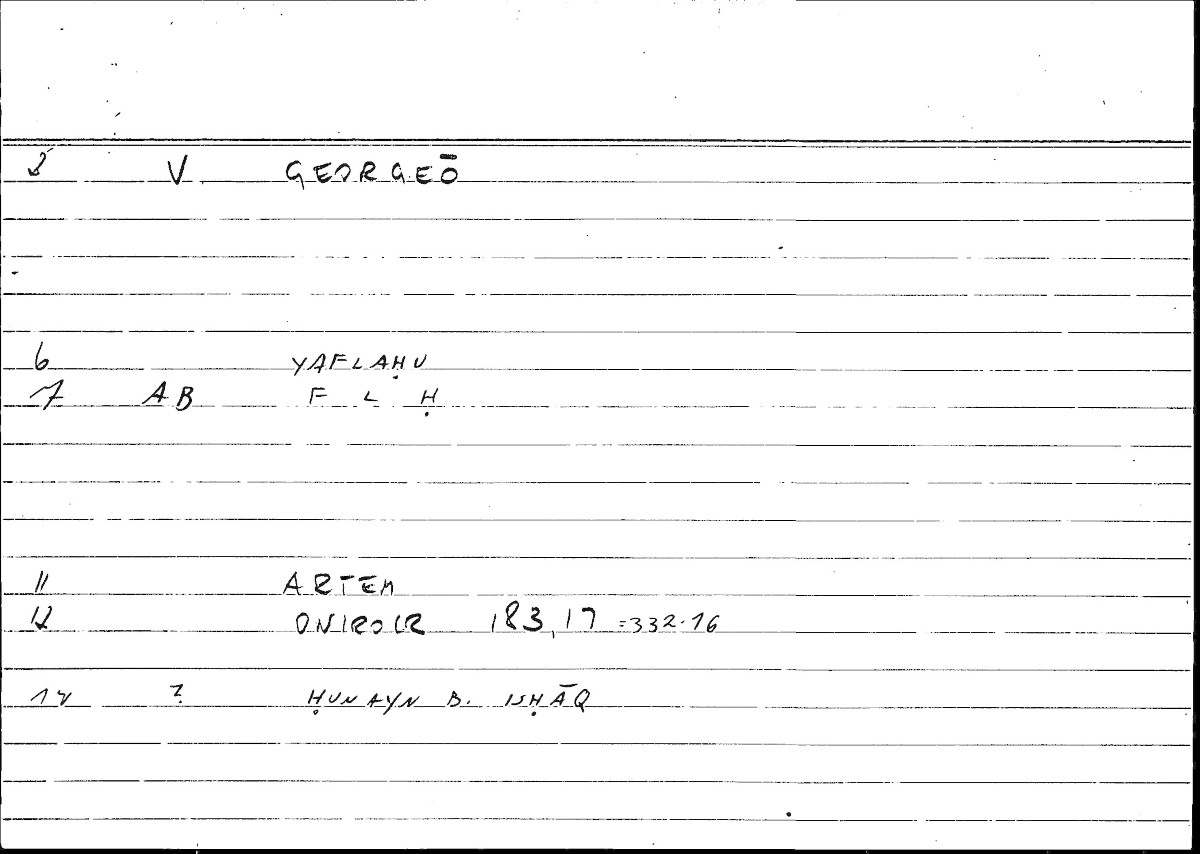 2 V GEORGEŌ
6 YAFLAḤU
7 AB F L Ḥ
11 ARTEM
12 ONIROCR 183,17 =332.16
14 ? ḤUNAYN B. ISḤĀQ